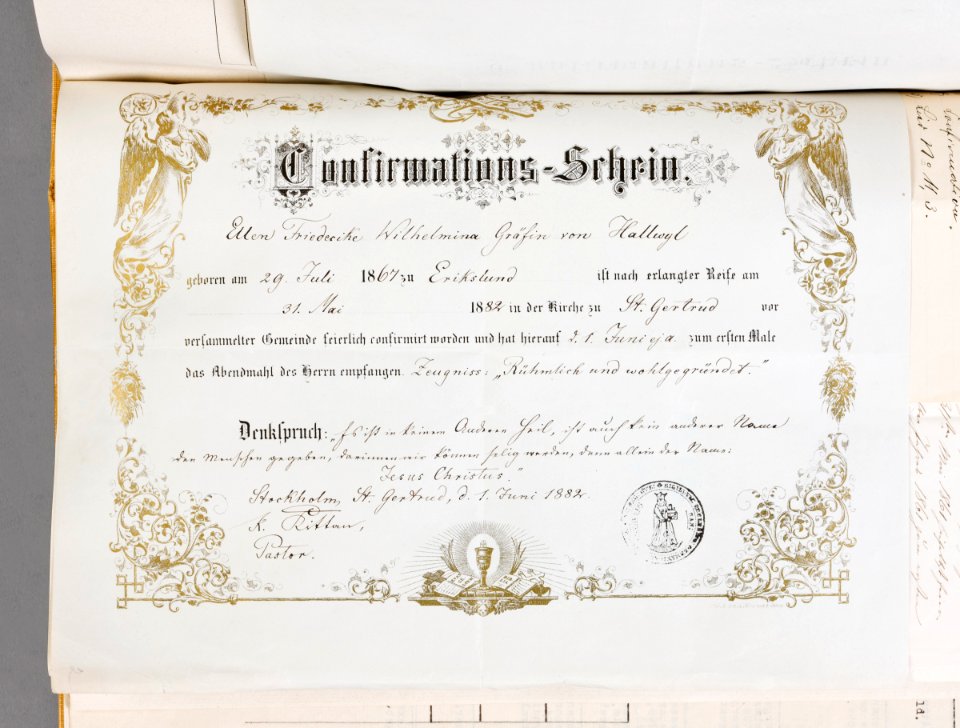 Confirmations-Schein.
Ellen Friederike Wilhelmina Gräfin von Hallwyl
geboren am 29. Juli 1867 zu Erikslund ist nach erlangter Reife am
31. Mai 1882 in der Kirche zu St. Gertrud vor
versammelter Gemeinde feierlich confirmirt worden und hat hierauf d. 1. Juni ej a. zum ersten Male
das Abendmahl des Herrn empfangen. Zeugniss: „Rühmlich und wohlgegründet."
Denkspruch: „Es ist in keinem Anderen Heil, ist auch kein anderer Name
den Menschen gegeben, darinnen wir können selig werden, denn allein der Name:
Jesus Christus"
Stockholm, St. Gertrud, d. 1. Juni 1882.
Pastor.
ld.